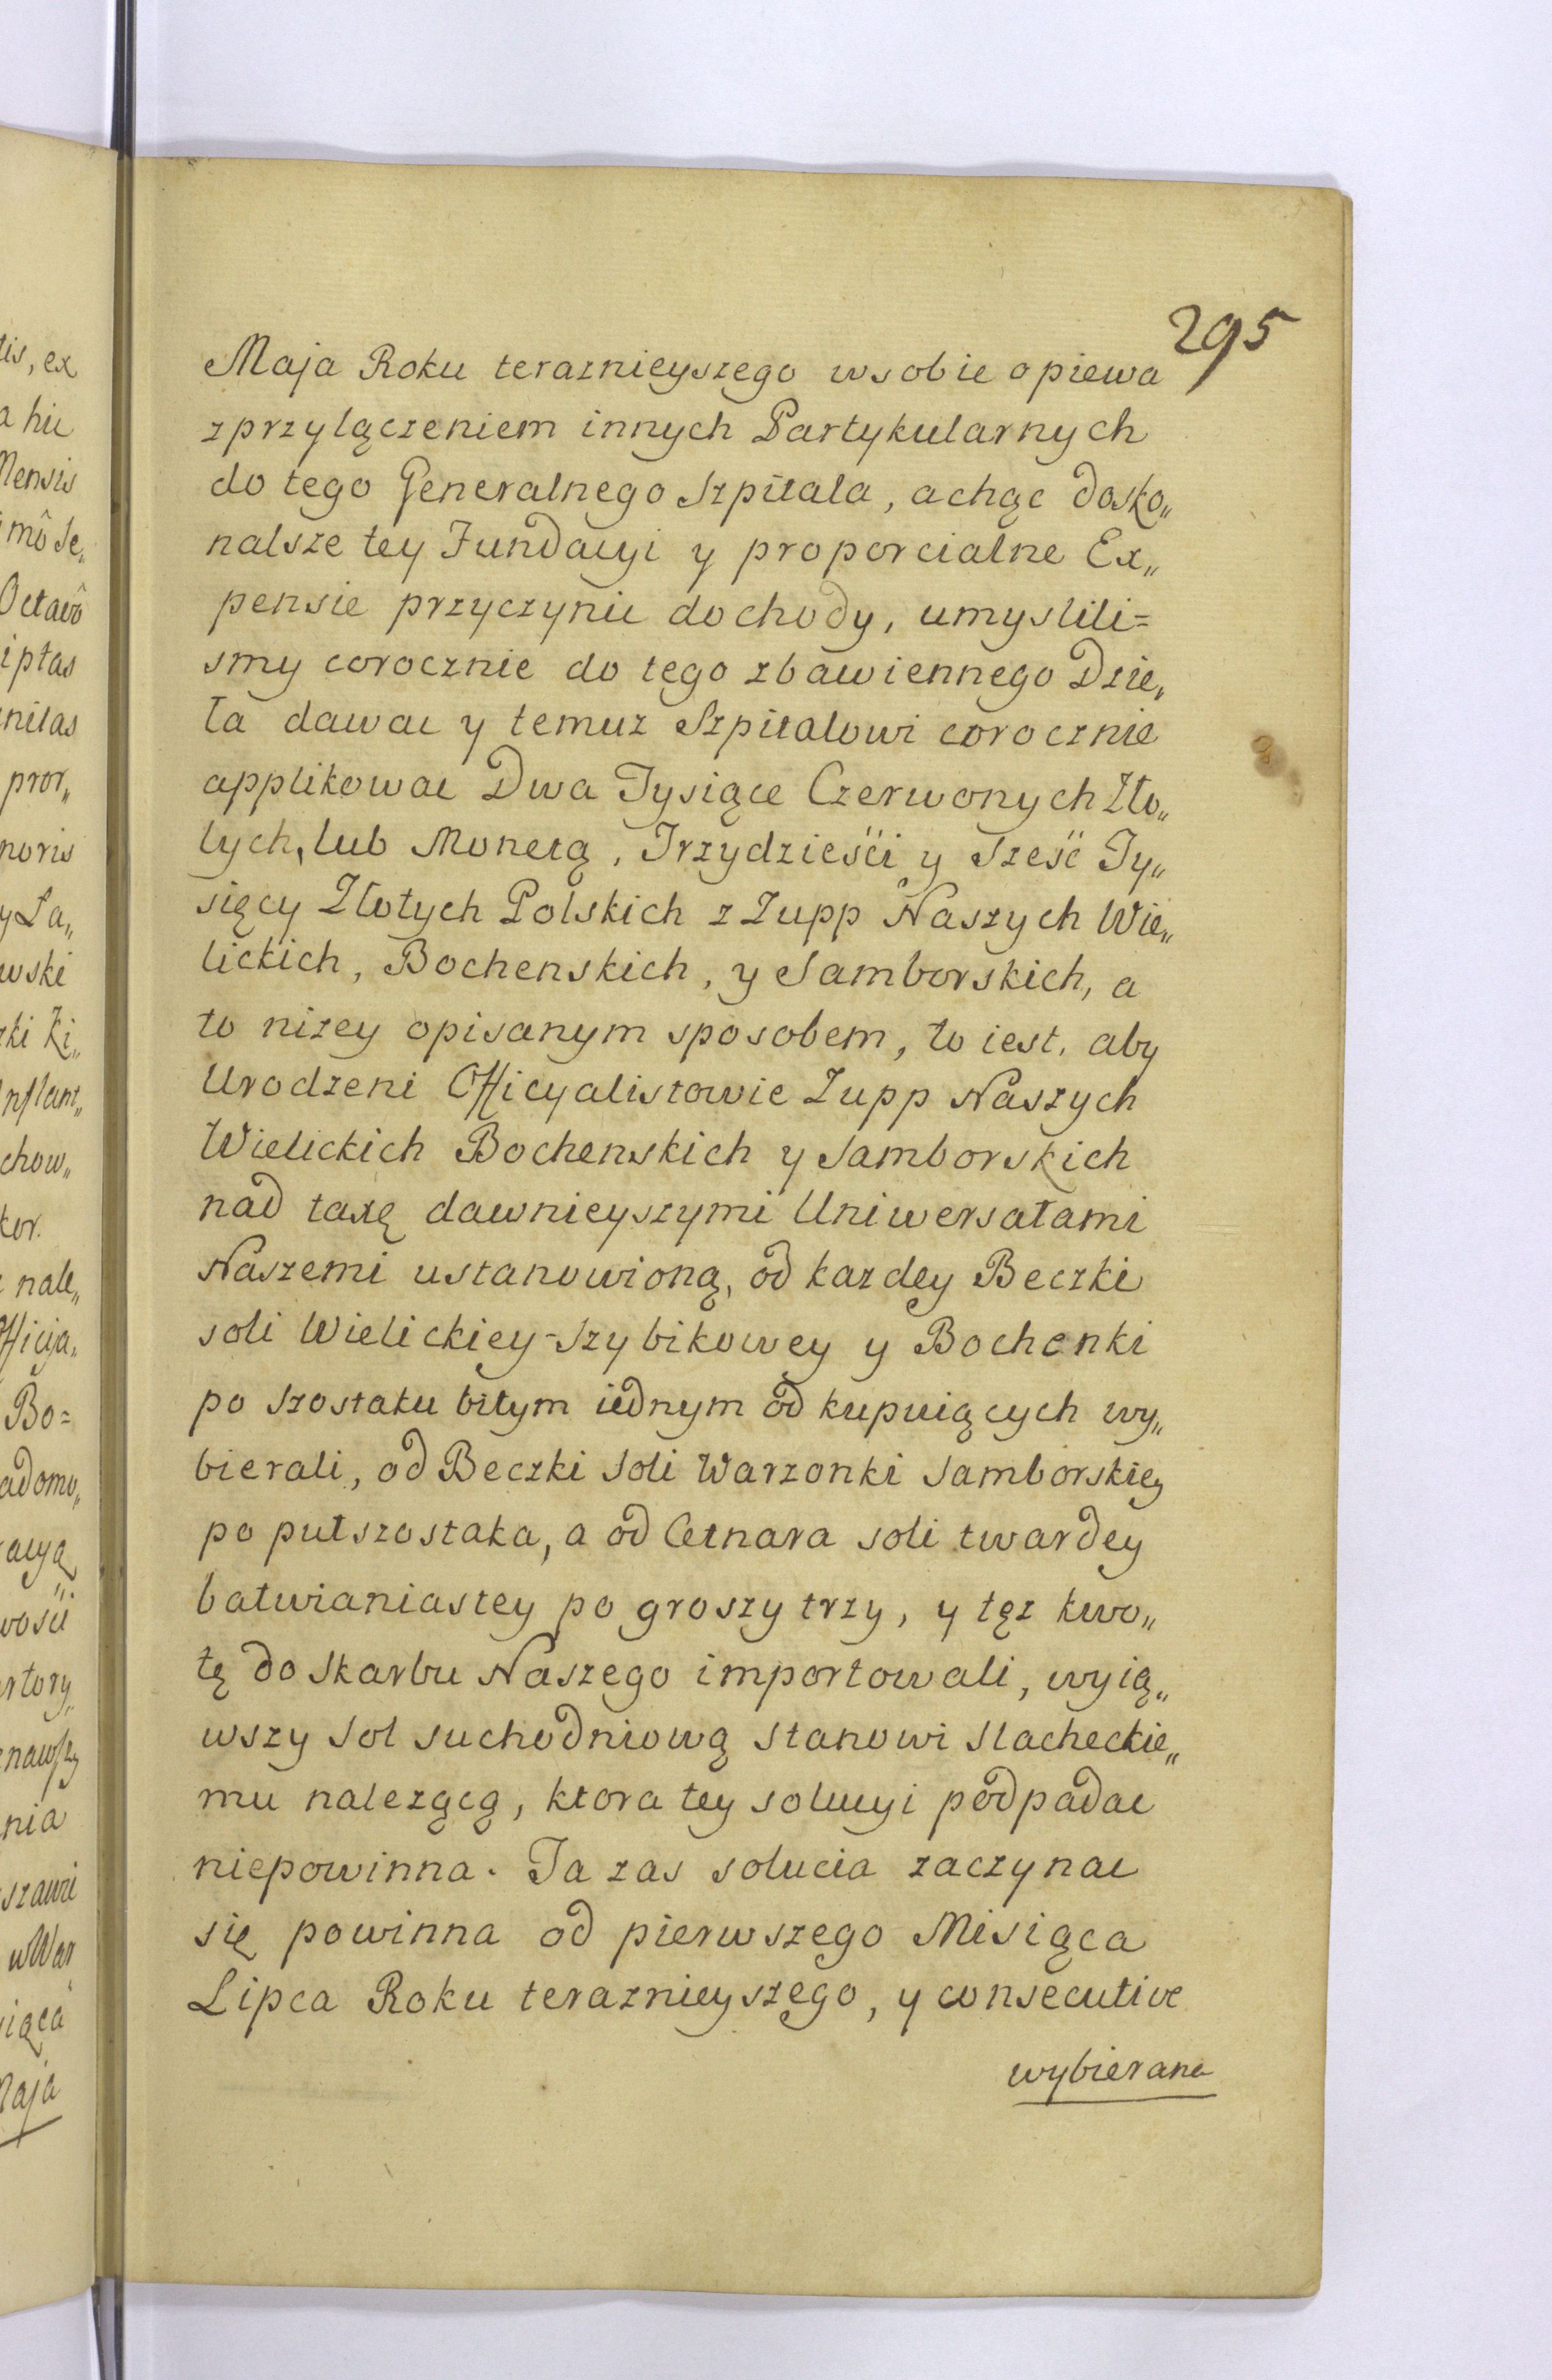 295
Maja Roku teraznieyszego wsobie opiewa
zprzyłączeniem innych Partykularnych
do tego Generalnego Szpitala, achąc dosko„
nalsze tey Fundacyi y proporcialne Ex„
pensie przyczynic dochody, umyslili=
smy corocznie do tego zbawiennego Dzie„
ła dawac y temuz Szpitalowi corocznie
applikowac Dwa Tysiące Czerwonych Zło„
tych, lub Monetą, Trzydzieści y Sześć Ty„
sięcy Złotych Polskich z Zupp Naszych Wie„
lickich, Bochenskich, y Samborskich, a
to nizey opisanym sposobem, to iest. aby
Urodzeni Officyalistowie Zupp Naszych
Wielickich Bochenskich y Samborskich
nad taxę dawnieyszymi Uniwersałami
Naszemi ustanowioną, od kazdey Beczki
soli Wielickiey-Szybikowey y Bochenki
po szostaku bitym iednym od kupuiących wy„
bierali, od Beczki Soli Warzonki Samborskiey
po putszostaka, a od Cetnara soli twardey
batwianiastey po groszy trzy, y tęz kwo„
tę do Skarbu Naszego importowali, wyią„
wszy Sol suchodniową Stanowi Slacheckie„
mu nalezącą, ktora tey solucyi podpadac
niepowinna. Ta zas solucia zaczynac
się powinna od pierwszego Misiąca
Lipca Roku teraznieyszego, y consecutive
wybierana
tis, ex
a hic
Mensis
mô Se„
Octavô
iptas
nitas
pror„
noris
y La„
wski
zki Ki„
nflant„
chow„
tor.
nale„
fficija„
Bo=
adomo„
acyą
wosci
rtory„
znawszy
nia
szawie
w War
iąca
Maja